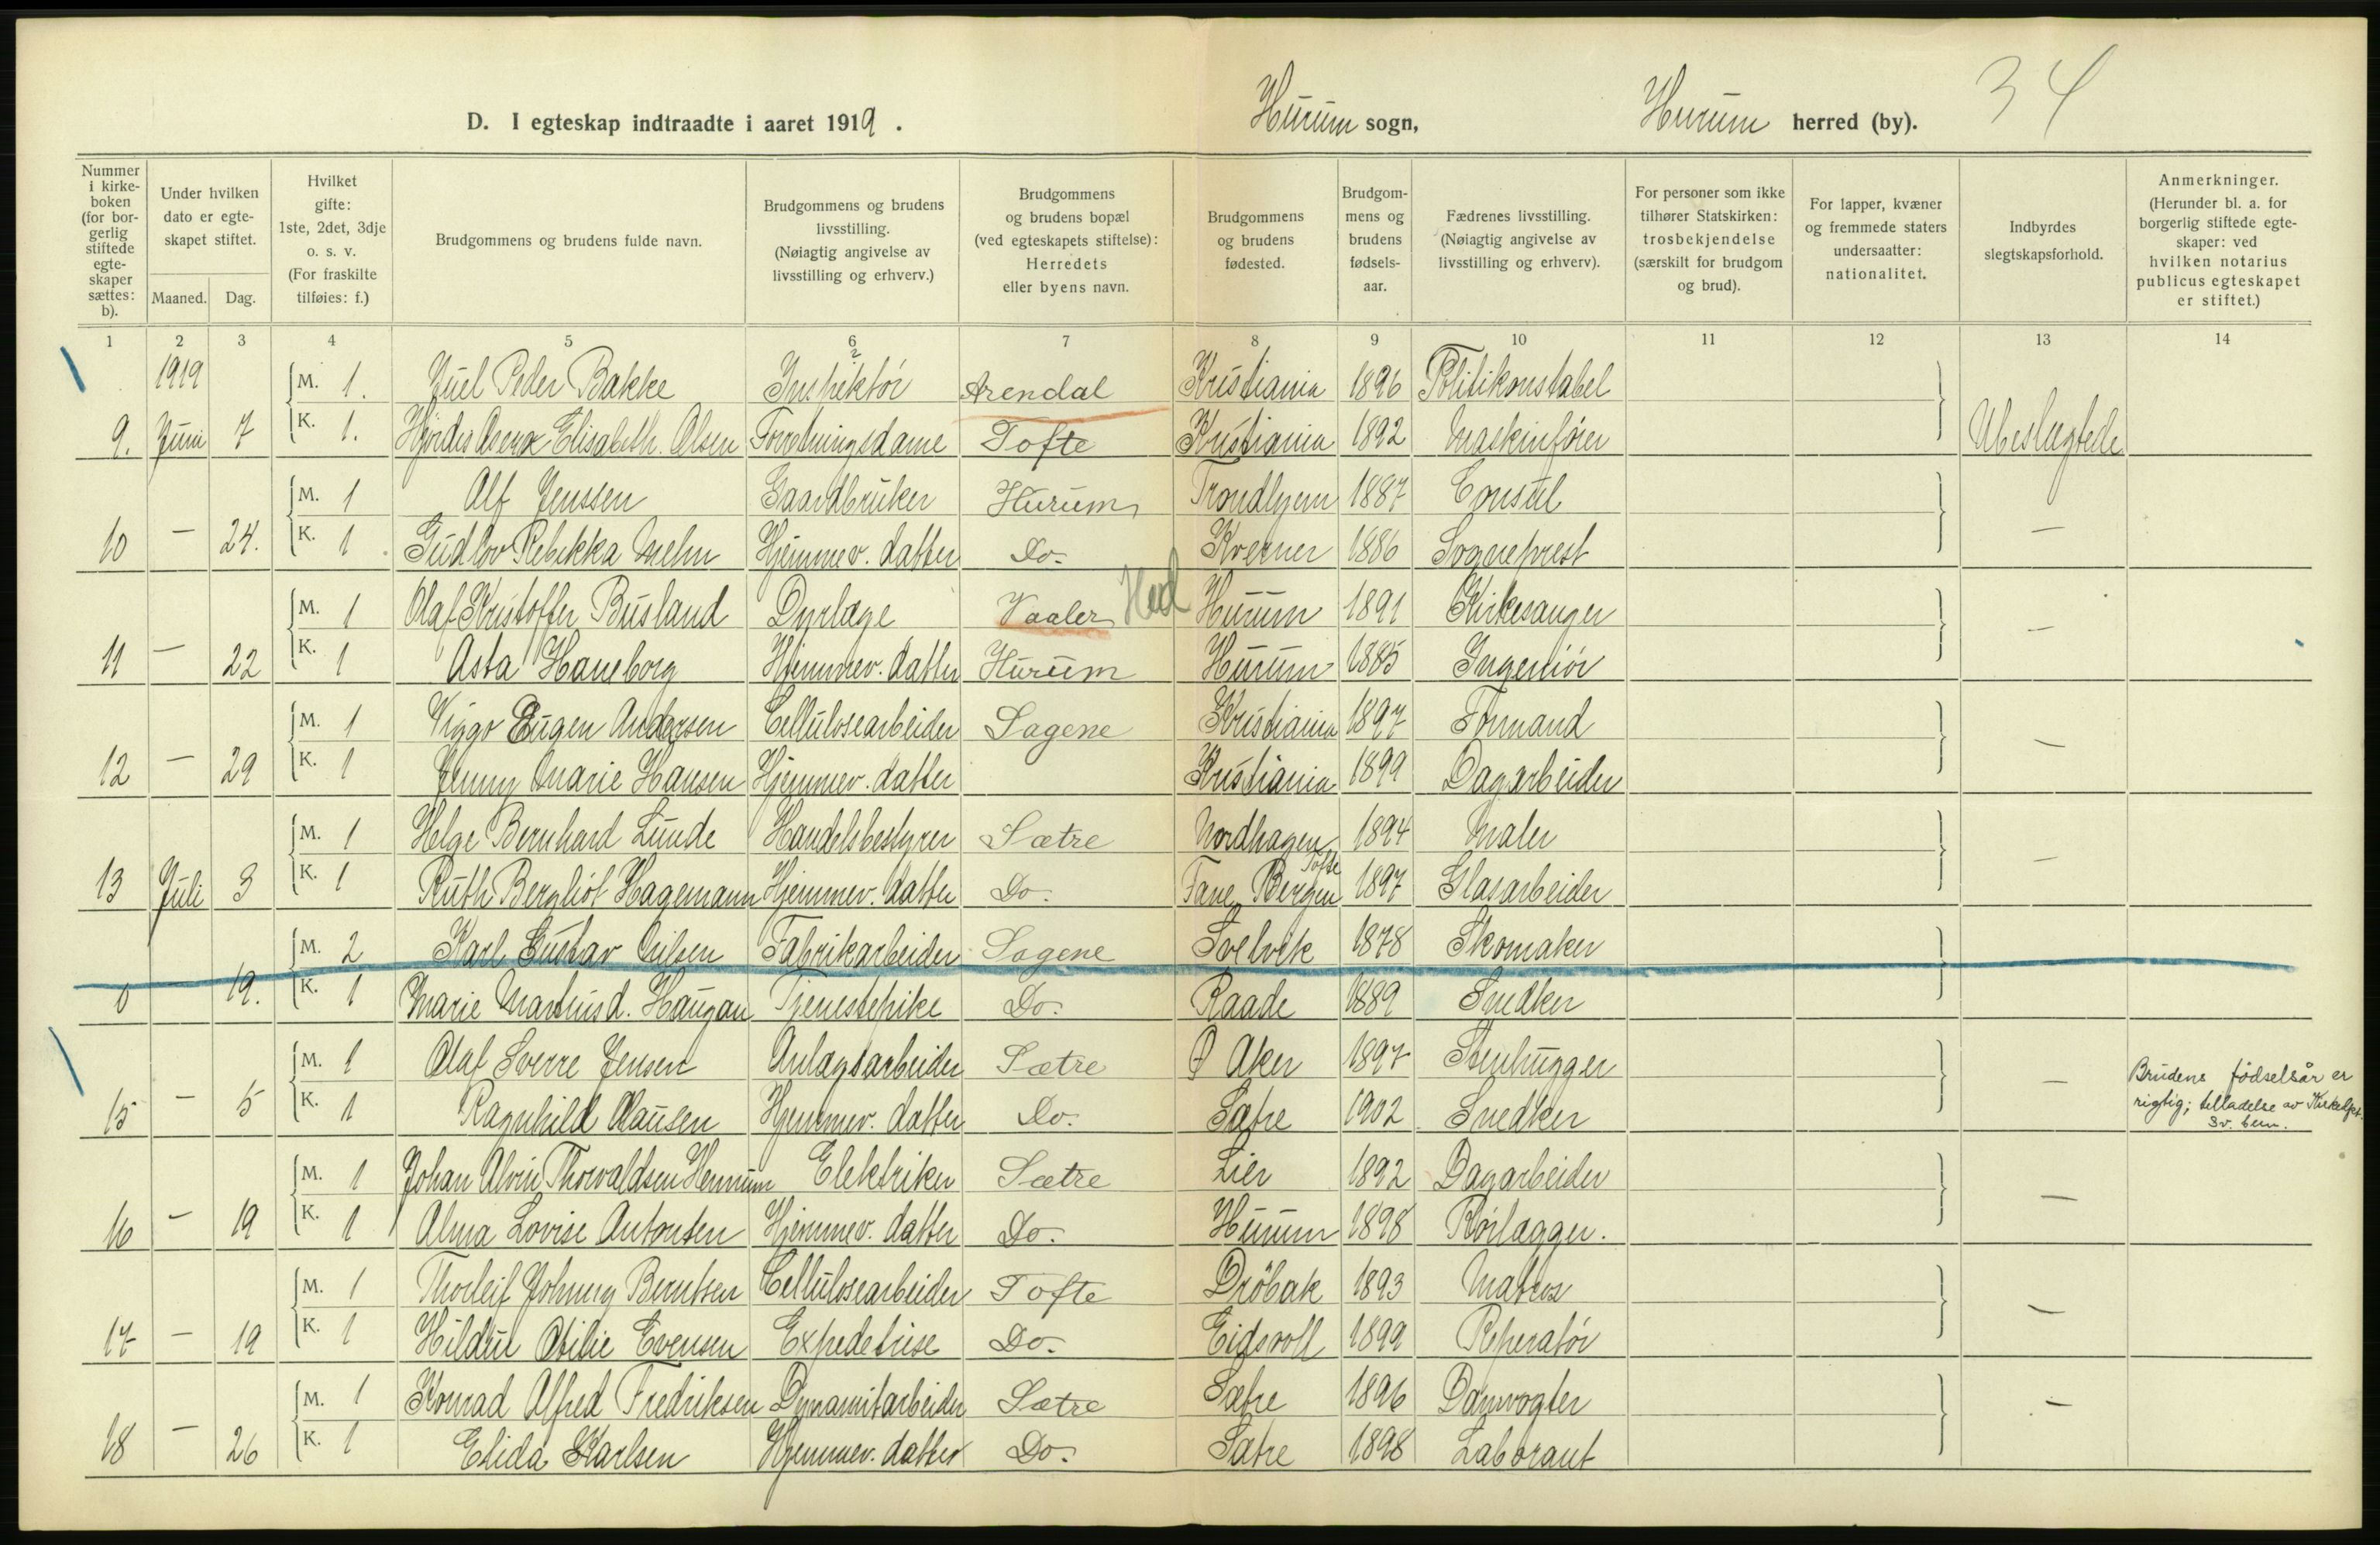 D. I egteskap indtraadte i aaret 1919.
Hurum sogn,
Hurum herred (by).
34
Nummer i kirke-boken (for bor-gerlig stiftede egte-skaper sættes: b).
Under hvilken dato er egte-skapet stiftet.
Maaned.
Dag.
Hvilket gifte: 1ste, 2det, 3dje o. s. v. (For fraskilte tilføies: f.)
Brudgommens og brudens fulde navn.
Brudgommens og brudens livsstilling. (Nøiagtig angivelse av livsstilling og erhverv.)
Brudgommens og brudens bopæl (ved egteskapets stiftelse): Herredets eller byens navn.
Brudgommens og brudens fødested.
Brudgom-mens og brudens fødsels-aar.
Fædrenes livsstilling. (Nøiagtig angivelse av livsstilling og erhverv).
For personer som ikke tilhører Statskirken: trosbekjendelse (særskilt for brudgom og brud).
For lapper, kvæner og fremmede staters undersaatter: nationalitet.
Indbyrdes slegtskapsforhold.
Anmerkninger. (Herunder bl. a. for borgerlig stiftede egte-skaper: ved hvilken notarius publicus egteskapet er stiftet.)
1 2 3 4 5 6 7 8 9 10 11 12 13 14
1919 M. 1. Juel Peder Bakke Inspektör Arendal Kristiania 1896 Politikonstabel
9. Juni 7 K. 1. Hjördis Elisabeth Olsen Forretningsdame Tofte Kristiania 1892 Maskinfører Ubeslægtede
M. 1 Alf Jenssen Gaardbruker Hurum Trondhjem 1887 Consul
10 — 24. K. 1 Gudlov Rebekka Mehn Hjemmev. datter Do. Kverner 1886 Sogneprest —
M. 1 Olaf Kristoffer Busland Dyrlæge Vaaler Hed Hurum 1891 Kirkesanger
11 — 22 K. 1 Asta Haneborg Hjemmev. datter Hurum Hurum 1885 Ingeniör —
M. 1 Viggo Eugen Andersen Cellulosearbeider Sagene Kristiania 1897 Formand
12 — 29 K. 1 Jenny Marie Hansen Hjemmev. datter Kristiania 1899 Dagarbeider —
M. 1 Helge Bernhard Lunde Handelsbestyrer Sætre Nordhagen 1894 Maler
13 Juli 3 K. 1 Ruth Bergliot Hagemann Hjemmev. datter Do. Fane Bergen Tofte 1897 Glasarbeider —
M. 2 Karl Gustav Nilsen Fabrikarbeider Sagene Svelvik 1878 Skomaker
0 19. K. 1 Marie Martinsd. Haugan Tjenestepike Do. Raade 1889 Snedker
M. 1 Olaf Sverre Jensen Anlægsarbeider Sætre Ø Aker 1897 Stenhugger
15 — 5 K. 1 Ragnhild Clausen Hjemmev. datter Do. Sætre 1902 Snedker —
Brudens födselsår er
rigtig; tilladelse av Kirkedpt.
M. 1 Johan Alvin Thorvaldsen Hennum Elektriker Sætre Lier 1892 Dagarbeider
16 — 19 K. 1 Alma Lovise Antonsen Hjemmev. datter Do. Hurum 1898 Rörlægger. —
M. 1 Thorleif Johnny Berntsen Cellulosearbeider Tofte Dröbak 1893 Matros
17 — 19 K. 1 Hildur Otilie Evensen Expedetrise Do. Eidsvoll 1899 Reperatör —
M. 1 Konrad Alfred Fredriksen Dynamitarbeider Sætre Sætre 1896 Damvogter
18 — 26 K. 1 Elida Karlsen Hjemmev. datter Do. Sætre 1898 Laborant —